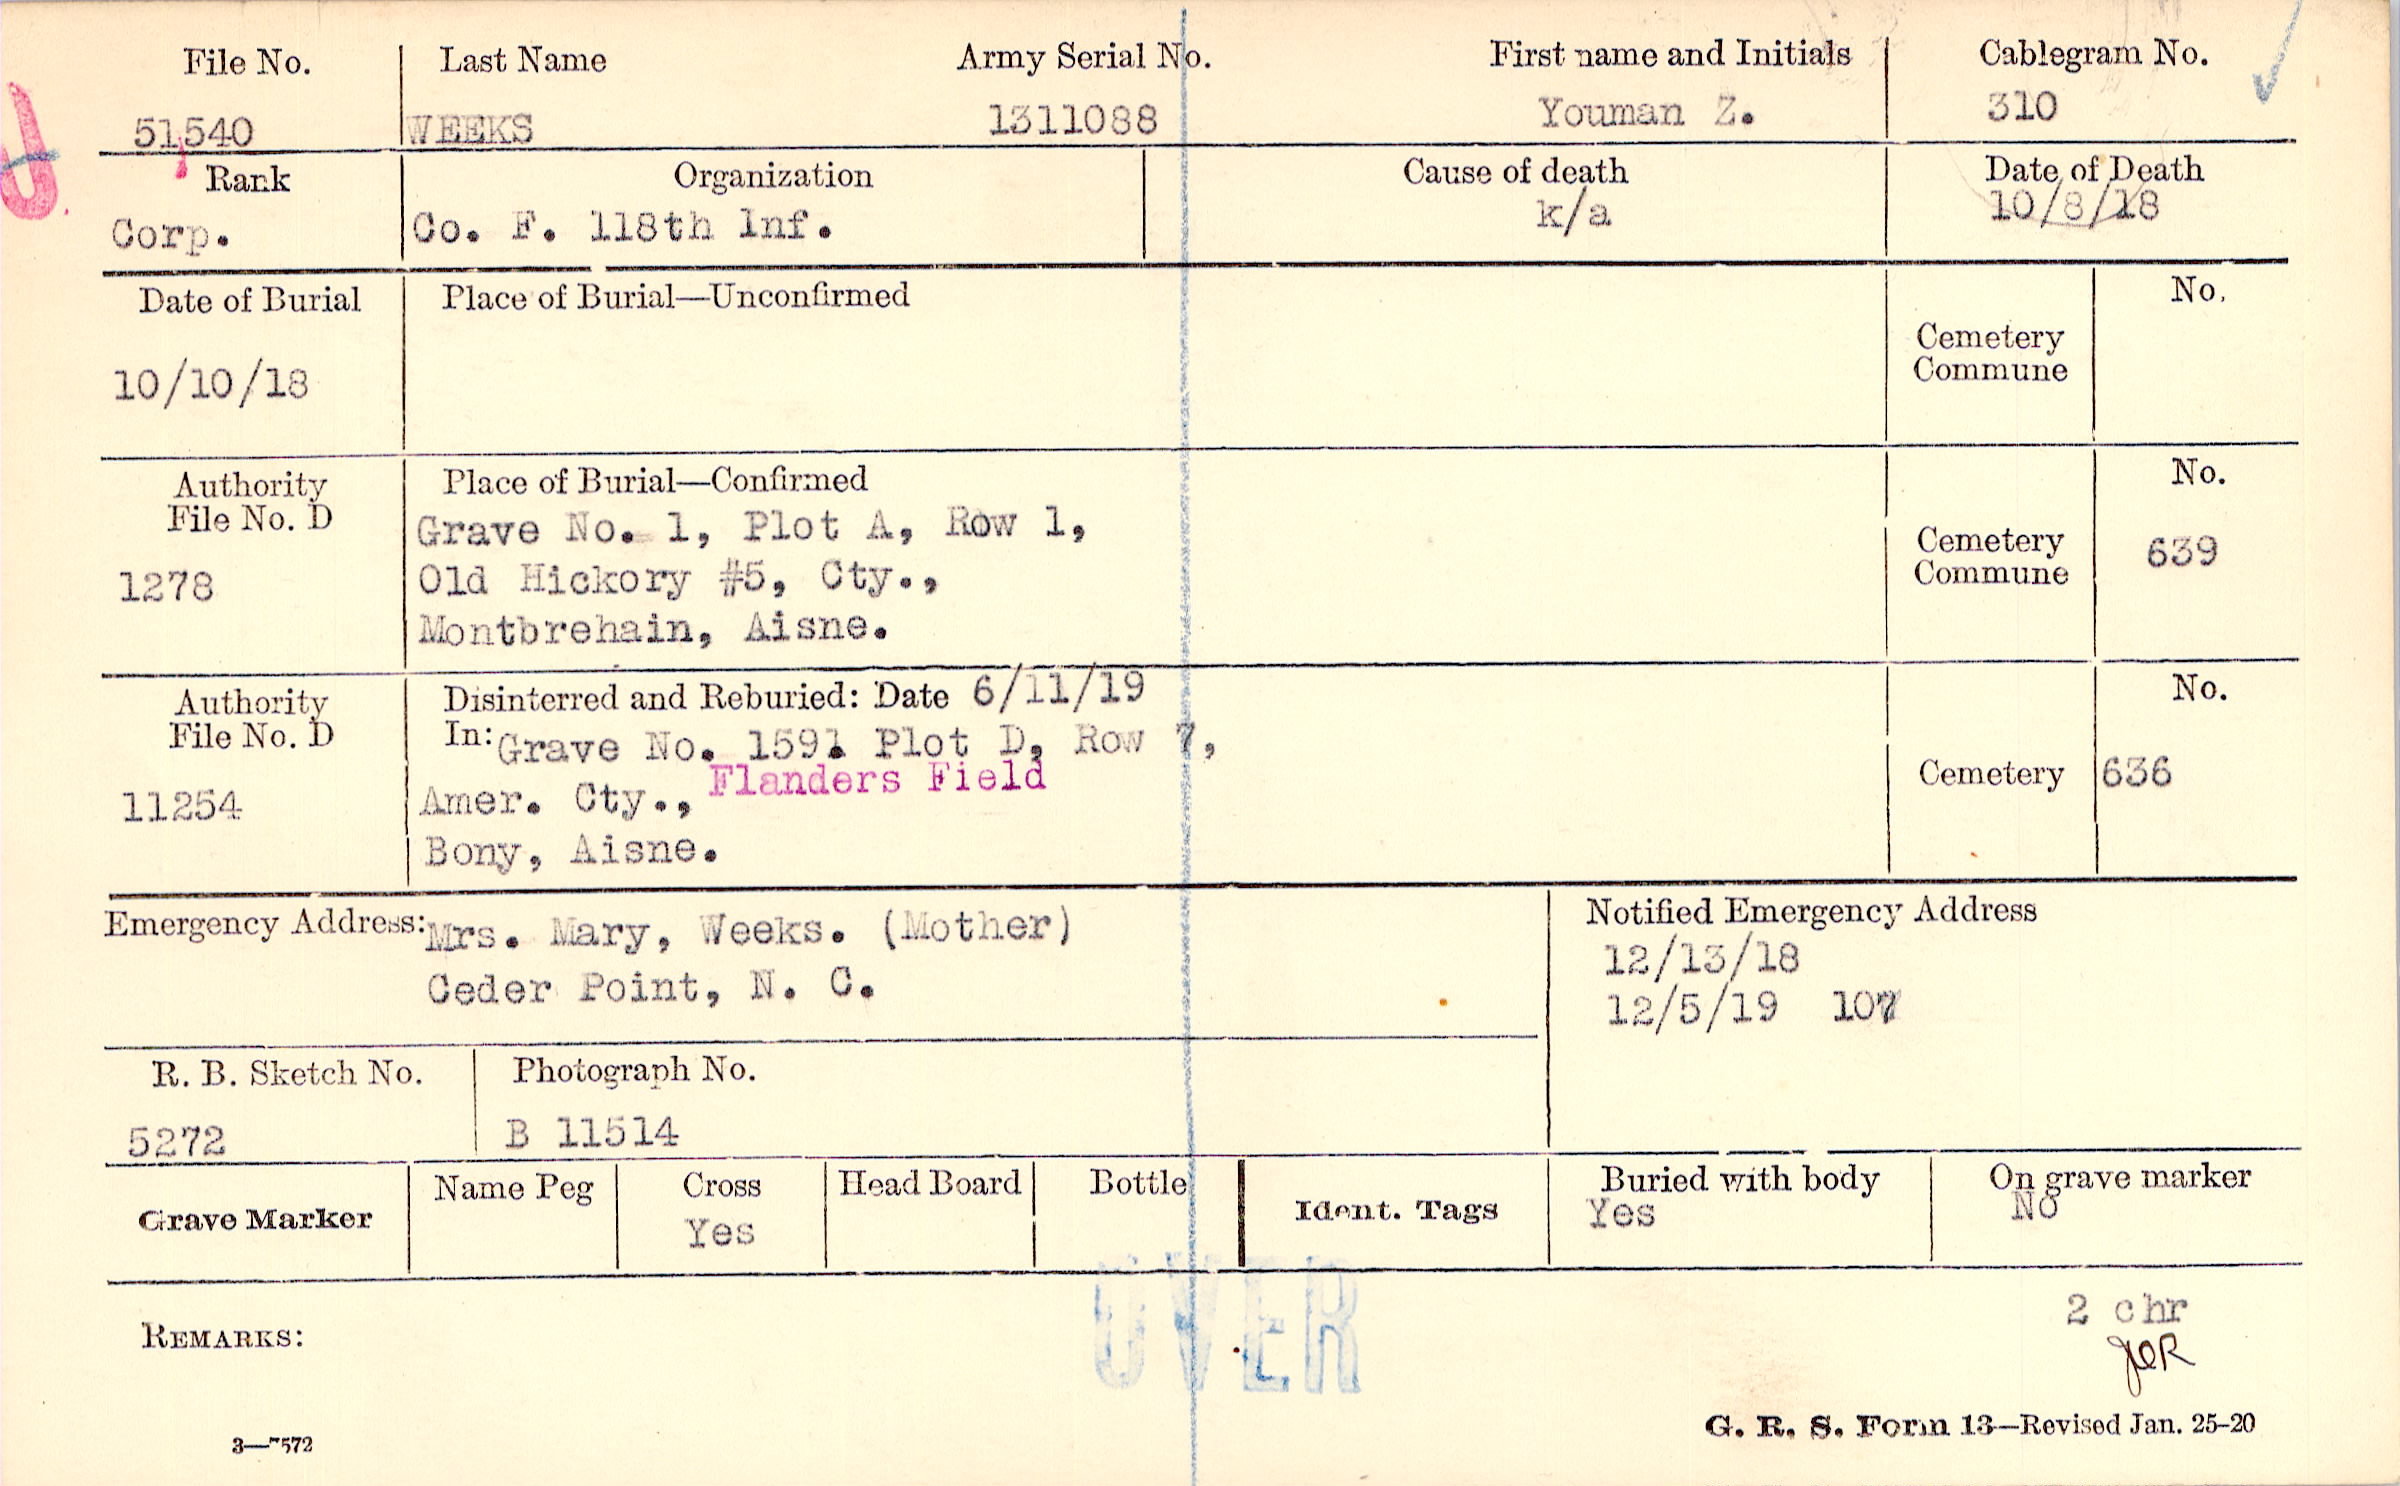 File No. Last Name Army Serial No. First name and Initials Cablegram No.
51540 WEEKS 1311088 Youman Z. 310
Rank Organization Cause of death Date of Death
Corp. Co. F. 118th Inf. k/a 10/8/18
Date of Burial Place of Burial—Unconfirmed No.
Cemetery
Commune
10/10/18
Authority Place of Burial—Confirmed No.
File No. D Grave No. 1, Plot A, Row 1,
Cemetery 639
Commune
1278 Old Hickory #5, Cty.,
Montbrehain, Aisne.
Authority Disinterred and Reburied: Date 6/11/19 No.
File No. D In: Grave No. 1591 Plot D, Row 7,
Flanders Field
11254 Amer. Cty., Cemetery 636
Bony, Aisne.
Emergency Address: Mrs. Mary, Weeks. (Mother) Notified Emergency Address
12/13/18
Ceder Point, N. C. 12/5/19 107
R. B. Sketch No. Photograph No.
5272 B 11514
Grave Marker Name Peg Cross Head Board Bottle Ident. Tags Buried with body On grave marker
Yes Yes No
OVER
2 chr
REMARKS: JER
G. R. S. Form 13—Revised Jan. 25-20
3—7572